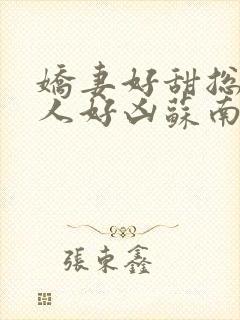 嬌妻好甜总
人好凶蘇南
張東鑫